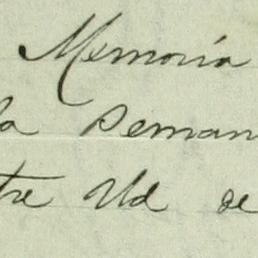 Memoria
la Seman
tre Ud de